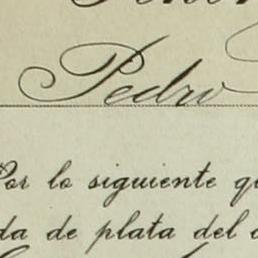 Pedro
Por lo siguiente q
da de plata del